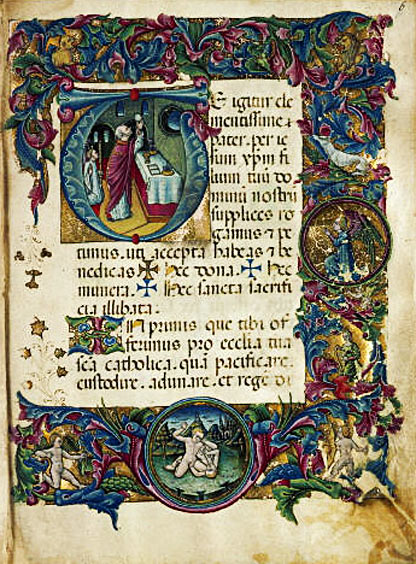 TE igitur cle
mentissime
pater. per ie
sum xpm fi
lium tuū do
minū nostrū
supplices ro
gamus ⁊ pe
timus. uti accepta habeas ⁊ be
nedicas ✠ hec dona. ✠ hec
munera. ✠ hec sancta sacrifi
cia illibata.
In primis que tibi of
ferimus pro ecclīa tua
scā catholica. quā pacificare.
custodire. adunare. et rege di